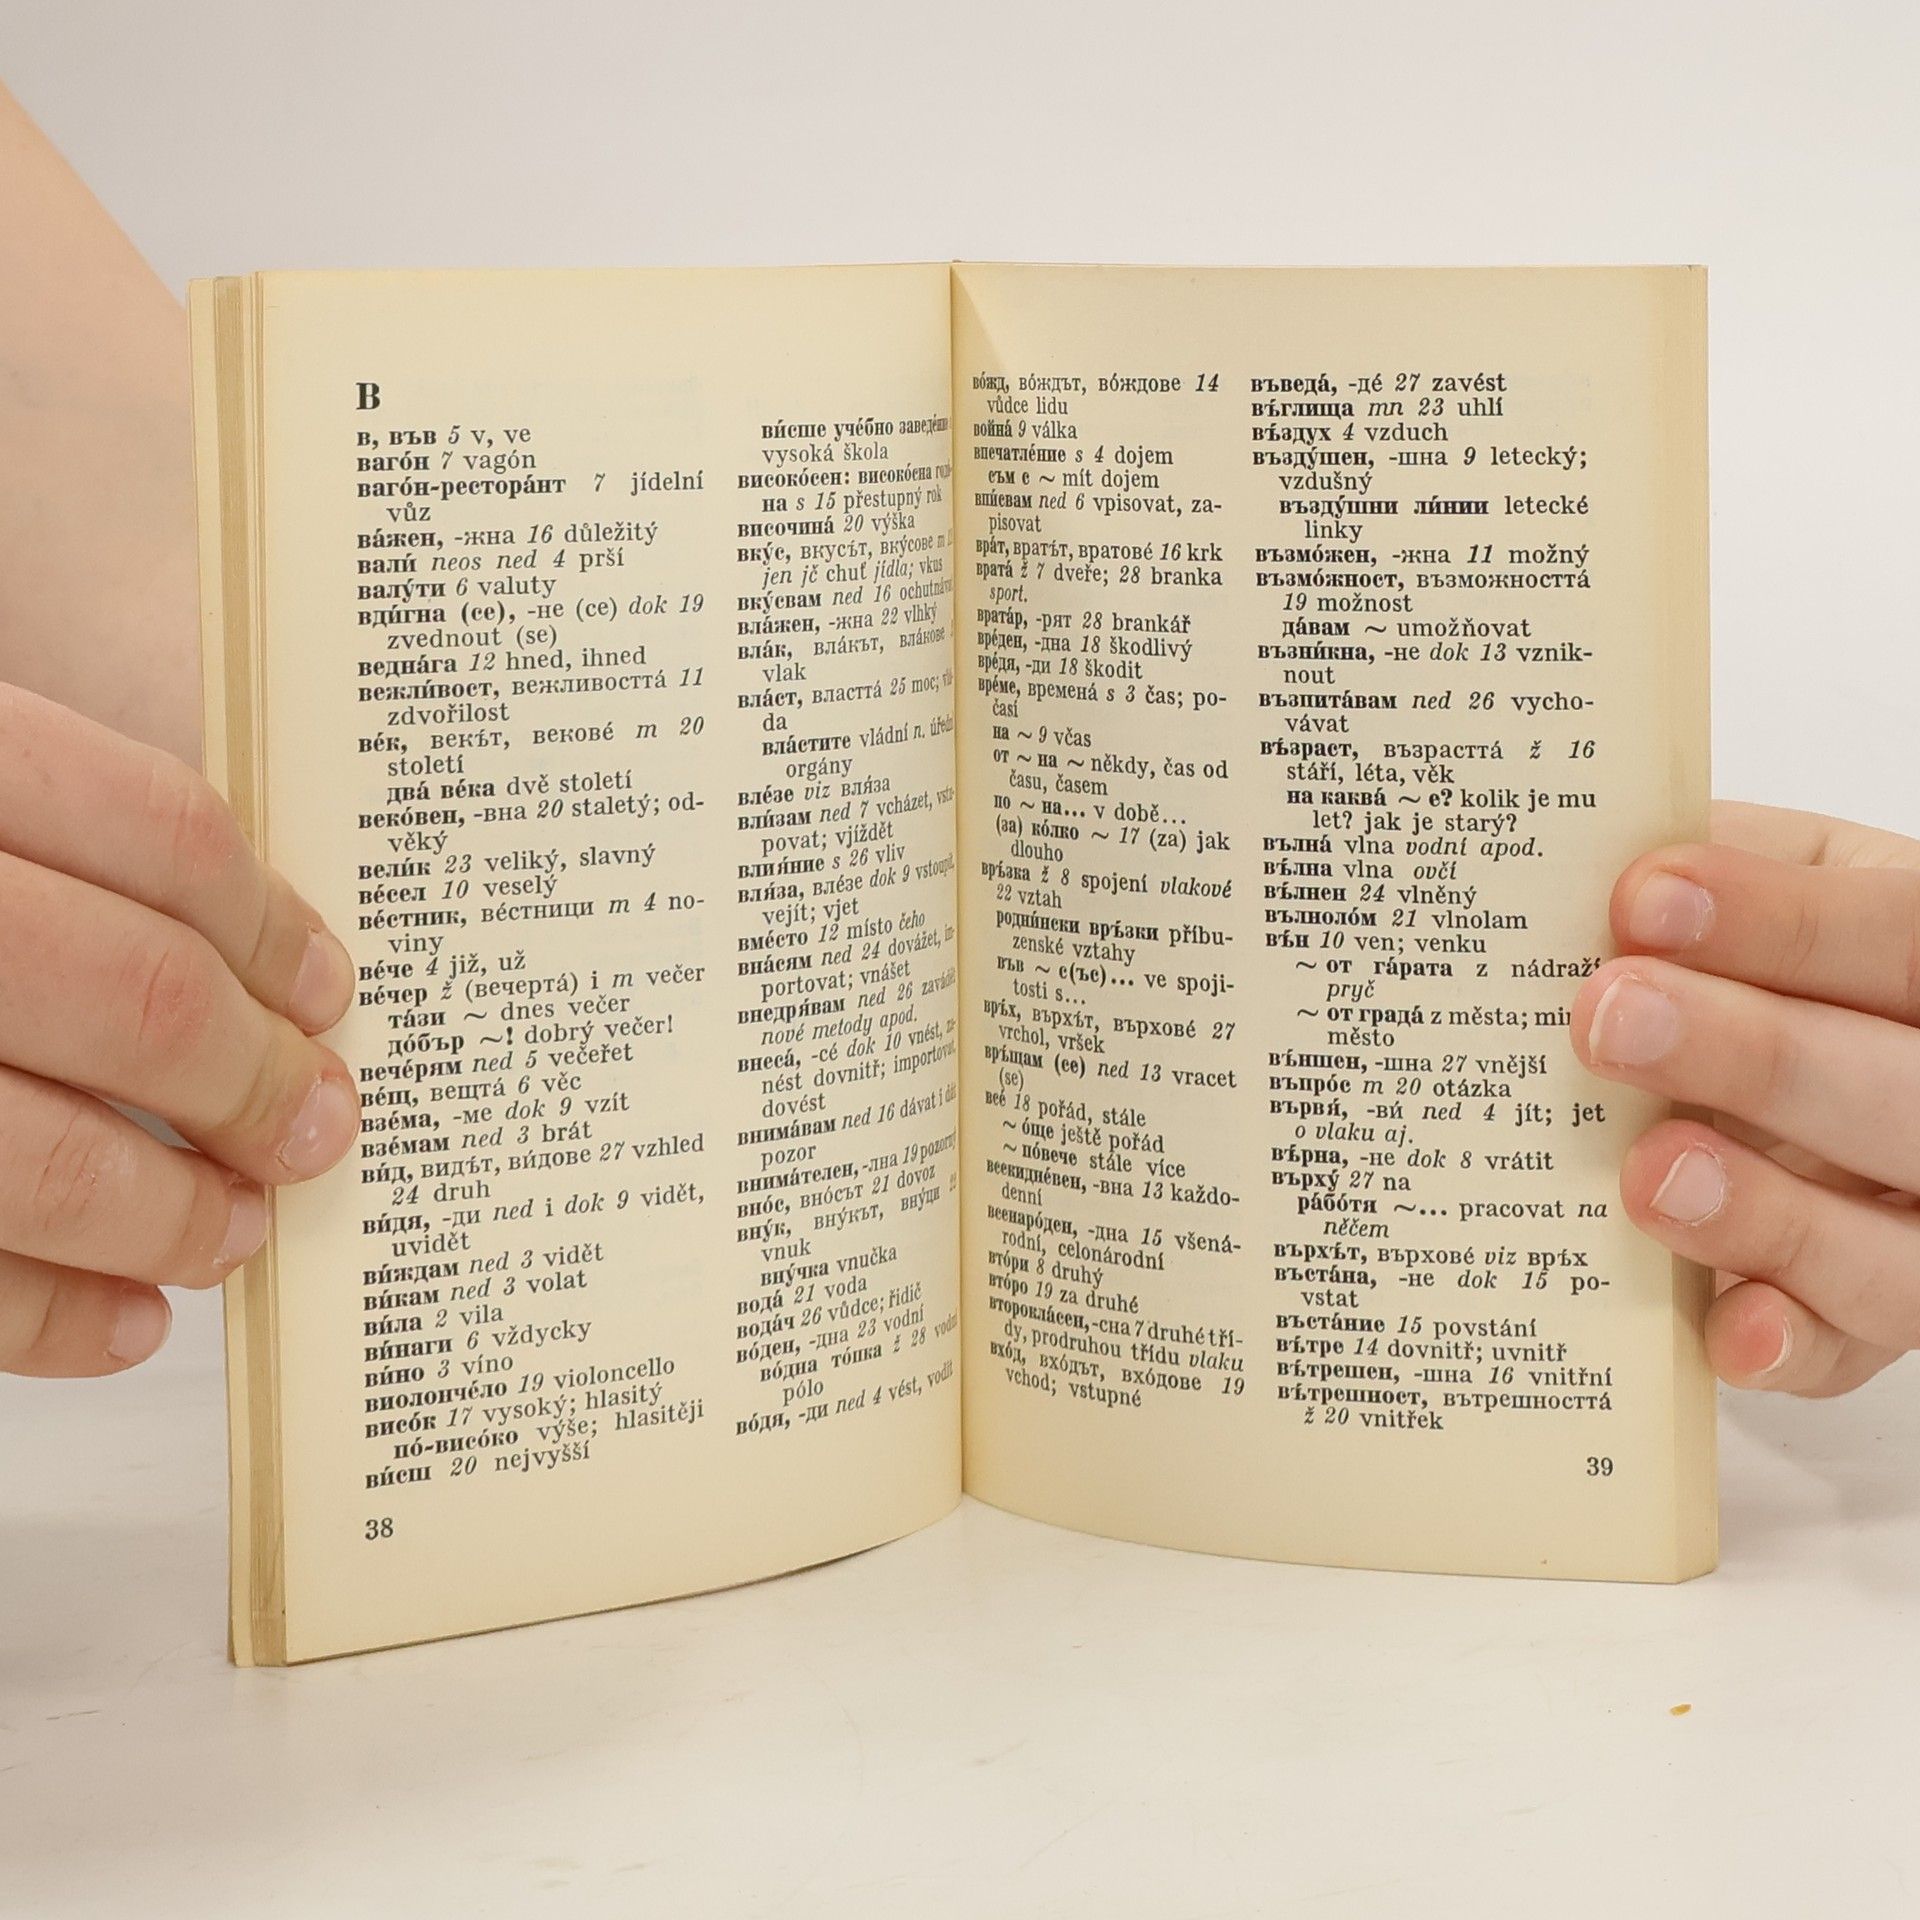 В
в, във 5 v, ve
вагóн 7 vagón
вагóн-ресторáнт 7 jídelní
vůz
вáжен, -жна 16 důležitý
валú neos ned 4 prší
валýти 6 valuty
вдúгна (се), -не (се) dok 19
zvednout (se)
веднáга 12 hned, ihned
вежлúвост, вежливосттá 11
zdvořilost
вéк, векъ́т, вековé m 20
století
двá вéка dvě století
векóвен, -вна 20 staletý; od-
věký
велúк 23 veliký, slavný
вéсел 10 veselý
вéстник, вéстници m 4 no-
viny
вéче 4 již, už
вéчер ž (вечертá) i m večer
тáзи ~ dnes večer
дóбър ~! dobrý večer!
вечéрям ned 5 večeřet
вéщ, вещтá 6 věc
взéма, -ме dok 9 vzít
взéмам ned 3 brát
вúд, видъ́т, вúдове 27 vzhled
24 druh
вúдя, -ди ned i dok 9 vidět,
uvidět
вúждам ned 3 vidět
вúкам ned 3 volat
вúла 2 vila
вúнаги 6 vždycky
вúно 3 víno
виолончéло 19 violoncello
висóк 17 vysoký; hlasitý
пó-висóко výše; hlasitěji
вúсш 20 nejvyšší
38
вúсше учéбно заведéние
vysoká škola
високóсен: високóсна
на s 15 přestupný rok
височинá 20 výška
вкýс, вкусъ́т, вкýсове m
jen jč chuť jídla; vkus
вкýсвам ned 16
влáжен, -жна 22 vlhký
влáк, влáкът, влáкове
vlak
влáст, власттá 25 moc;
da
влáстите vládní n.
orgány
влéзе viz вля́за
влúзам ned 7 vcházet,
povat; vjíždět
влия́ние s 26 vliv
вля́за, влéзе dok 9
vejít; vjet
вмéсто 12 místo čeho
внáсям ned 24 dovážet, im-
portovat; vnášet
внедря́вам ned 26
nové metody apod.
внесá, -сé dok 10 vnést,
nést dovnitř; importovat,
dovést
внимáвам ned 16 dávat i
pozor
внимáтелен, -лна 19 pozorný
внóс, внóсът 21 dovoz
внýк, внýкът, внýци
vnuk
внýчка vnučka
водá 21 voda
водáч 26 vůdce; řidič
вóден, -дна 23 vodní
вóдна тóпка ž 28
pólo
вóдя, -ди ned 4 vést, vodit
вóжд, вóждът, вóждове 14
vůdce lidu
войнá 9 válka
впечатлéние s 4 dojem
съм с ~ mít dojem
впúсвам ned 6 vpisovat, za-
pisovat
врáт, вратъ́т, вратовé 16 krk
вратá ž 7 dveře; 28 branka
sport.
вратáр, -рят 28 brankář
врéден, -дна 18 škodlivý
вредя́, -ди 18 škodit
врéме, временá s 3 čas; po-
časí
на ~ 9 včas
от ~ на ~ někdy, čas od
času, časem
по ~ на... v době...
(за) кóлко ~ 17 (za) jak
dlouho
връ́зка ž 8 spojení vlakové
22 vztah
роднúнски връ́зки příbu-
zenské vztahy
във ~ с(ъс)... ve spoji-
tosti s...
връ́х, върхъ́т, върховé 27
vrchol, vršek
връ́щам (се) ned 13 vracet
(se)
всé 18 pořád, stále
~ óще ještě pořád
~ пóвече stále více
всекиднéвен, -вна 13 každo-
denní
всенарóден, -дна 15 všená-
rodní, celonárodní
втóри 8 druhý
втóро 19 za druhé
второклáсен, -сна 7 druhé tří-
dy, prodruhou třídu vlaku
вхóд, вхóдът, вхóдове 19
vchod; vstupné
въведá, -дé 27 zavést
въ́глища mn 23 uhlí
въ́здух 4 vzduch
въздýшен, -шна 9 letecký;
vzdušný
въздýшни лúнии letecké
linky
възмóжен, -жна 11 možný
възмóжност, възможносттá
19 možnost
дáвам ~ umožňovat
възнúкна, -не dok 13 vznik-
nout
възпитáвам ned 26 vycho-
vávat
въ́зраст, възрасттá ž 16
stáří, léta, věk
на каквá ~ е? kolik je mu
let? jak je starý?
вълнá vlna vodní apod.
въ́лна vlna ovčí
въ́лнен 24 vlněný
вълнолóм 21 vlnolam
въ́н 10 ven; venku
~ от гáрата z nádraží
pryč
~ от градá z města;
město
въ́ншен, -шна 27 vnější
въпрóс m 20 otázka
вървя́, -вú ned 4 jít; jet
o vlaku aj.
въ́рна, -не dok 8 vrátit
върхý 27 na
рáбóтя ~... pracovat na
něčem
върхъ́т, върховé viz връ́х
въстáна, -не dok 15 po-
vstat
въстáние 15 povstání
въ́тре 14 dovnitř; uvnitř
въ́трешен, -шна 16 vnitřní
въ́трешност, вътрешносттá
ž 20 vnitřek
39